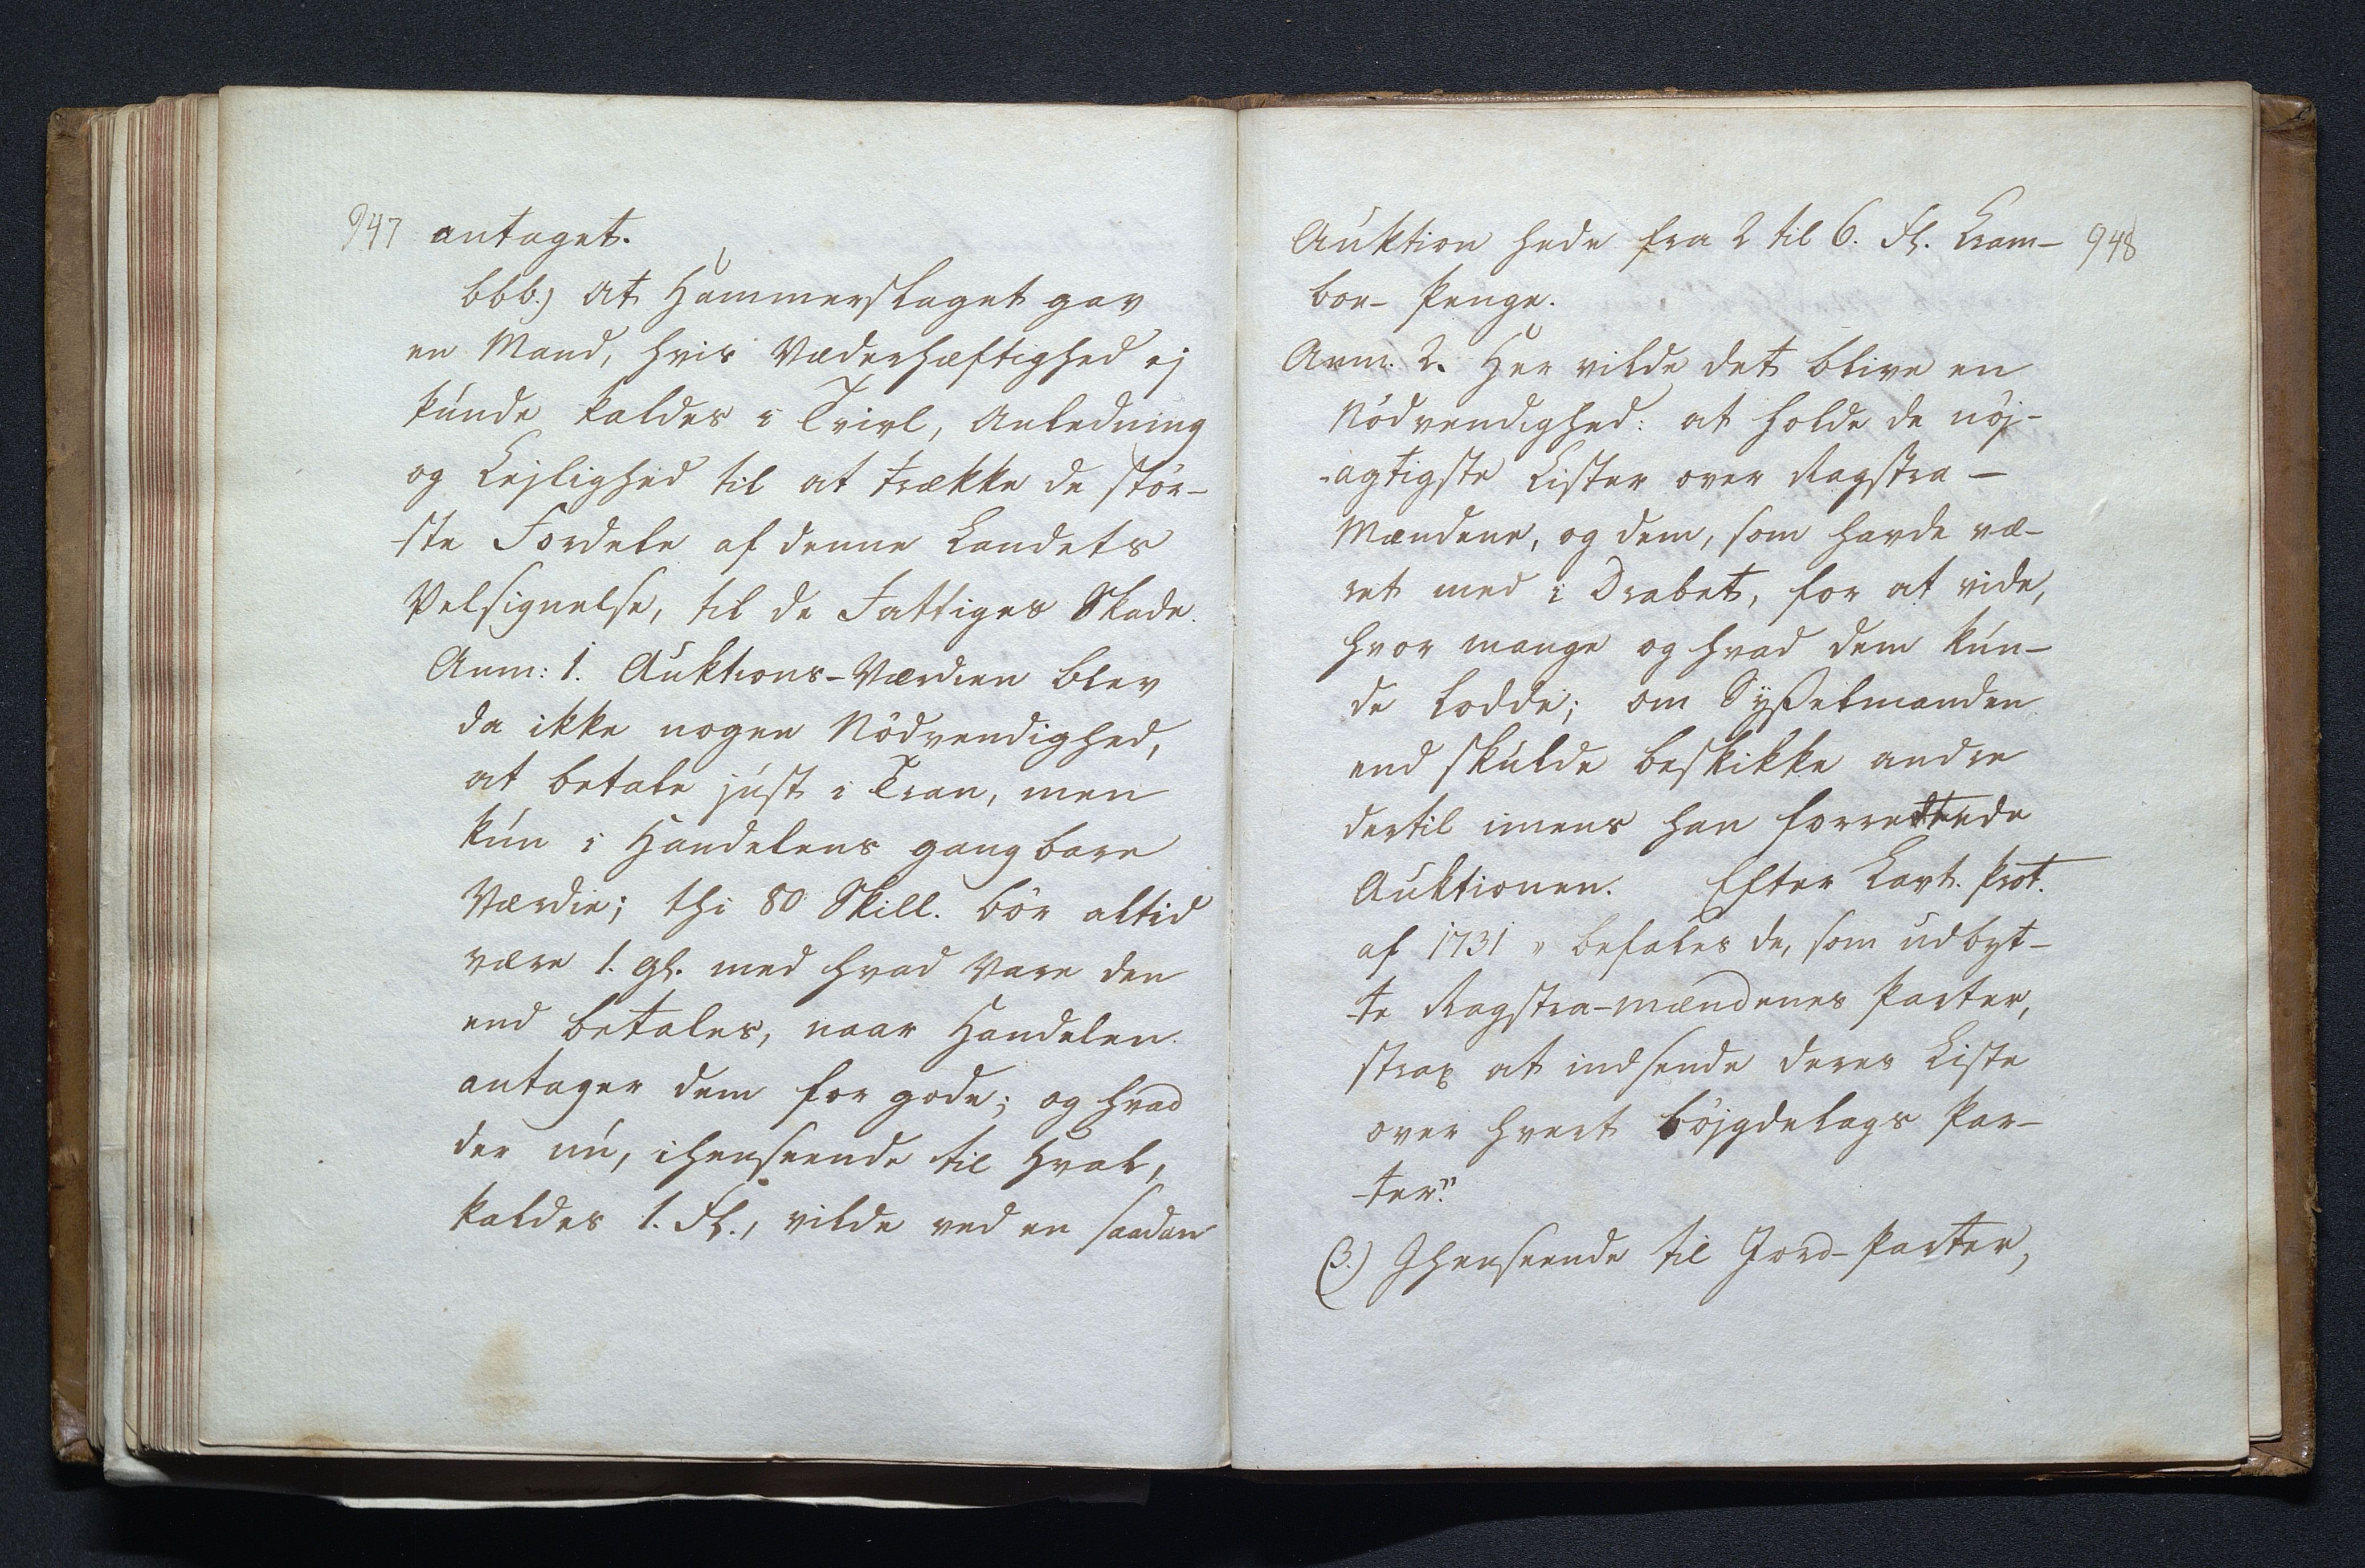 947 antaget.
bbb.) at Hammerslaget gav
en Mand, hvis Væderhæftighed ej
kunde kaldes i Tvivl, Anledning
og Lejlighed til at trække de stör-
-ste Fordele af denne Landets
Velsignelse, til de Fattiges Skade.
Anm: 1. Auktions-Værdien blev
da ikke nogen Nödvendighed,
at betale just i Tran, men
kun i Handelens gangbare
Værdie; thi 80 Skill. bör altid
være 1. Gl. med hvad Vare den
end betales, naar Handelen
antager dem for gode; og hvad
der nu, ihenseende til Hval,
kaldes 1. Fl., vilde ved en saadan
Auktion hede fra 2 til 6. Fl. Kram- 948
bor- Penge.
Anm. 2. Her vilde det blive en
Nödvendighed: at holde de nöj-
-agtigste Lister over Ragstra-
Mændene, og dem, som havde væ-
ret med i Drabet, for at vide,
hvor mange og hvad dem kun-
de lodde; om Sysselmanden
end skulde beskikke andre
dertil imens han forrettede
Auktionen. Efter Lavt. Prot.
af 1731 "befales de, som udbyt-
-te Ragstra-mændenes Parter,
strax at indsende deres Liste
over hvert böjgdelags Par-
-ter."
β.) Ihenseende til Jord-Parter,